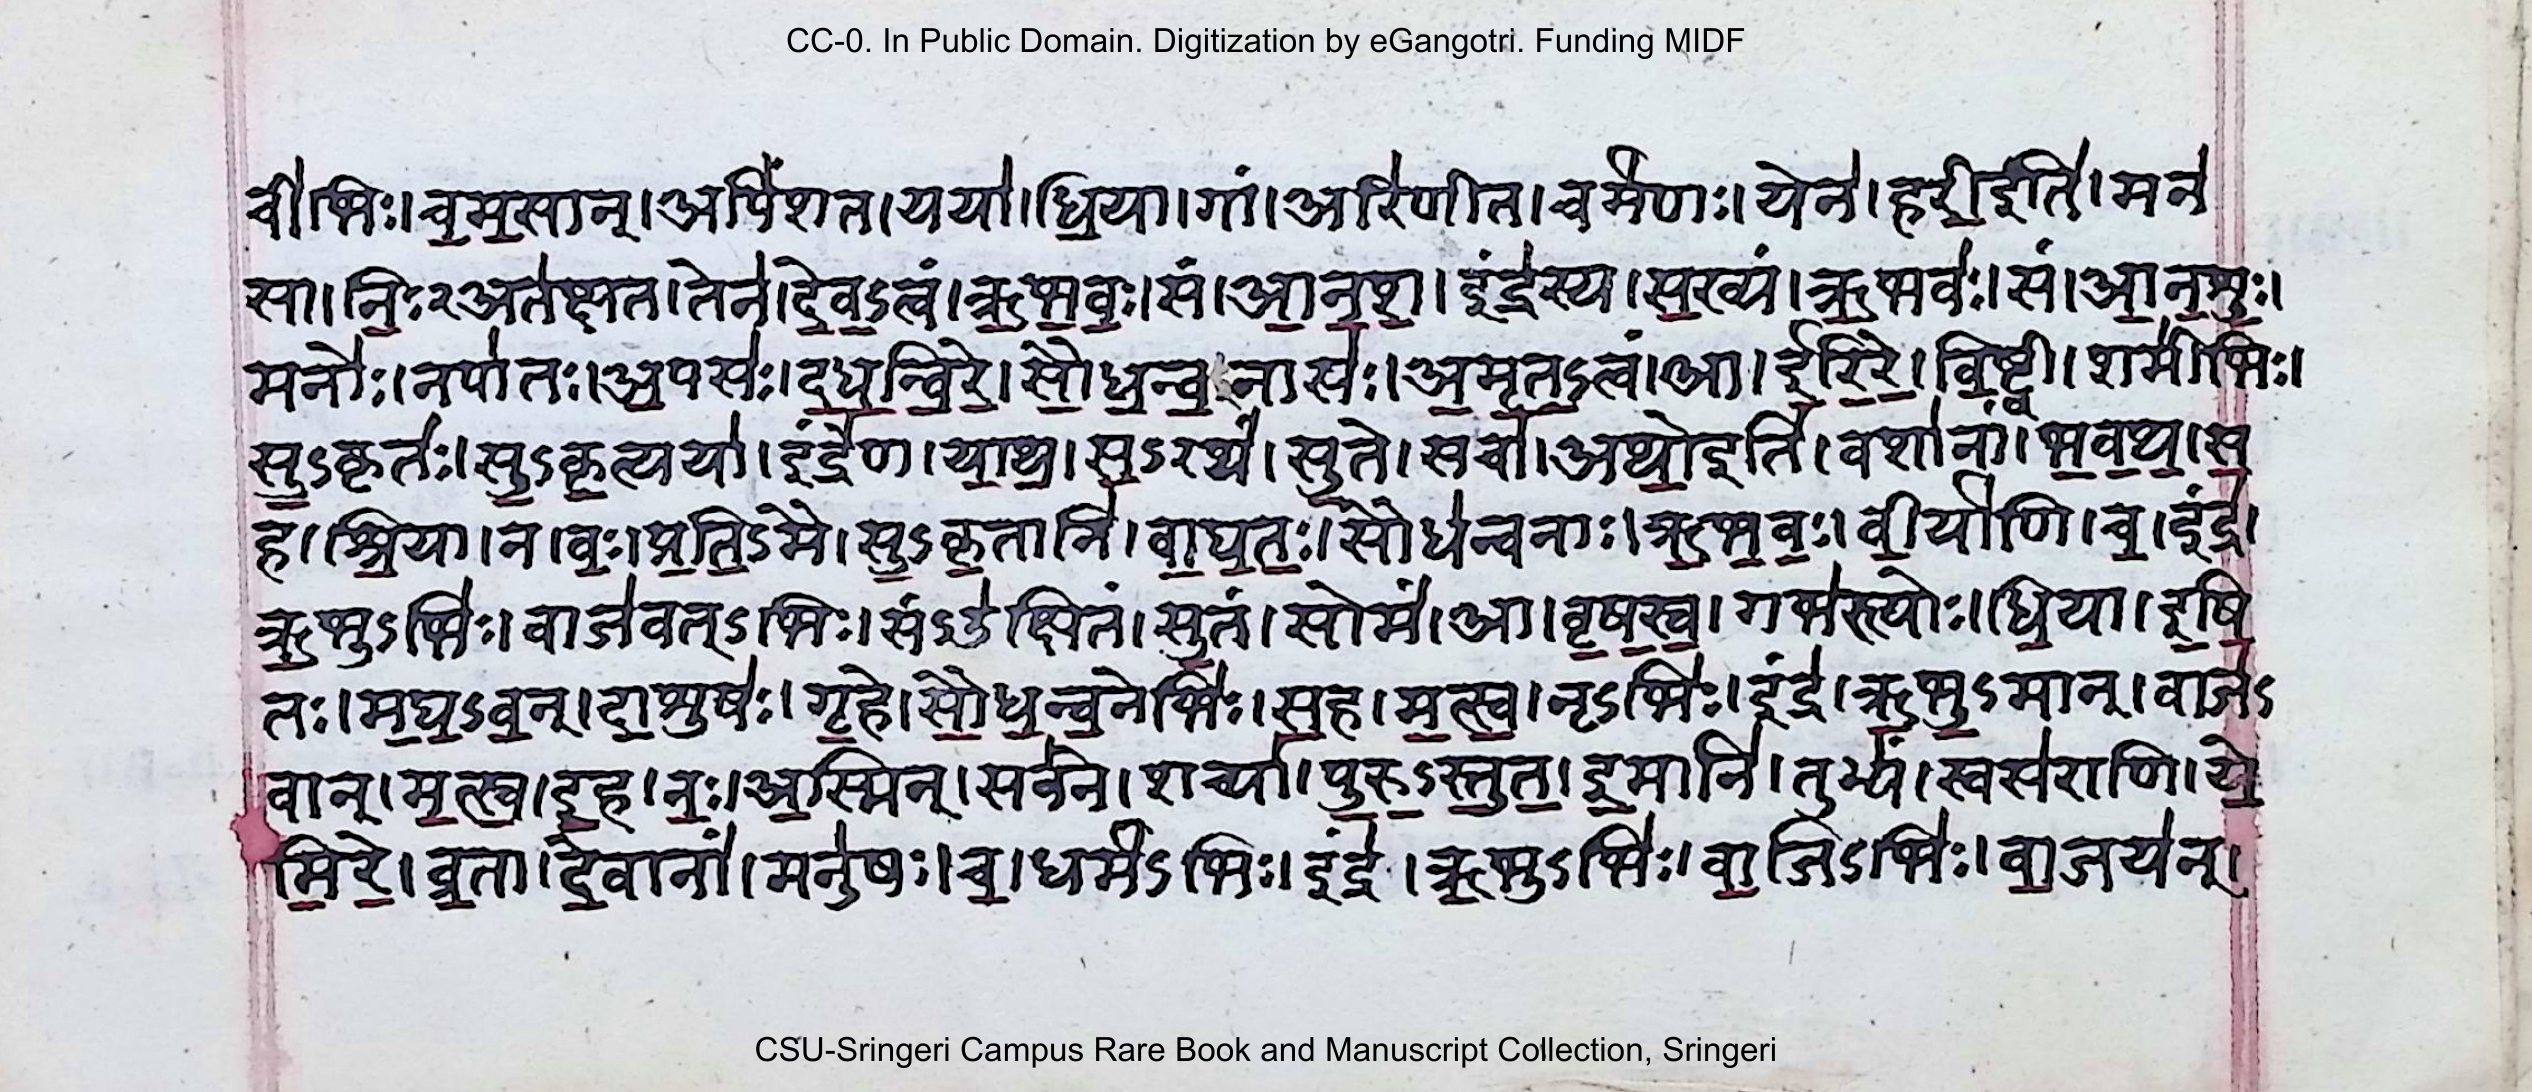 CC-0. In Public Domain. Digitization by eGangotri. Funding MIDF
ची॑भिः।च॒म॒सान्।अपिं॑शत।यया॑।धि॒या।गां।अरि॑णीत।चर्म॑णः।येन॑।हरी॒इति॑।मन॑
सा।नि॒ः२अत॑क्षत।तेन॑।दे॒व॒ऽत्वं।ऋ॒भ॒व॒ः।सं।आ॒न॒श॒।इंद्र॑स्य।स॒ख्यं।ऋ॒भवः॑।सं।आ॒न॒शु॒ः।
मनोः॑।नपा॑तः।अ॒पसः॑।द॒ध॒न्वि॒रे॒।सौ॒ध॒न्व॒नासः॑।अ॒मृ॒त॒ऽत्वं।आ।ई॒रि॒रे॒।वि॒ष्ट्वी।शमी॑भिः।
सु॒ऽकृतः॑।सु॒ऽकृ॒त्यया॑।इंद्रे॑ण।या॒थ॒।स॒ऽरथं॑।सु॒ते।सचा॑।अथो॒इति॑।वशा॑नां।भ॒व॒थ॒।स॒
ह।श्रि॒या।न।व॒ः।प्र॒ति॒ऽमै।सु॒ऽकृ॒तानि॑।वा॒घ॒त॒ः।सौध॑न्वनाः।ऋ॒भ॒व॒ः।वी॒र्या॑णि।च॒।इंद्र॑।
ऋ॒भुऽभिः॑।वाज॑वत्ऽभिः।संऽउ॑क्षितं।सु॒तं।सोमं॑।आ।वृ॒ष॒स्व॒।गभ॑स्त्योः।धि॒या।इ॒षि॒
तः।म॒घ॒ऽव॒न्।दा॒शुषः॑।गृ॒हे।सौ॒ध॒न्व॒नेभिः॑।स॒ह।म॒त्स्व॒।नृऽभिः॑।इंद्र॑।ऋ॒भु॒ऽमान्।वाज॑ऽ
वान्।म॒त्स्व॒।इ॒ह।न॒ः।अ॒स्मिन्।सव॑ने।शच्या॑।पु॒रु॒ऽस्तु॒त॒।इ॒मानि॑।तुभ्यं॑।स्वस॑राणि।ये॒
मि॒रे॒।व्र॒ता।दे॒वानां॑।मनु॑षः।च॒।धर्म॑ऽभिः।इंद्र॑।ऋ॒भुऽभिः॑।वा॒जिऽभिः॑।वा॒जय॑न्।
CSU-Sringeri Campus Rare Book and Manuscript Collection, Sringeri